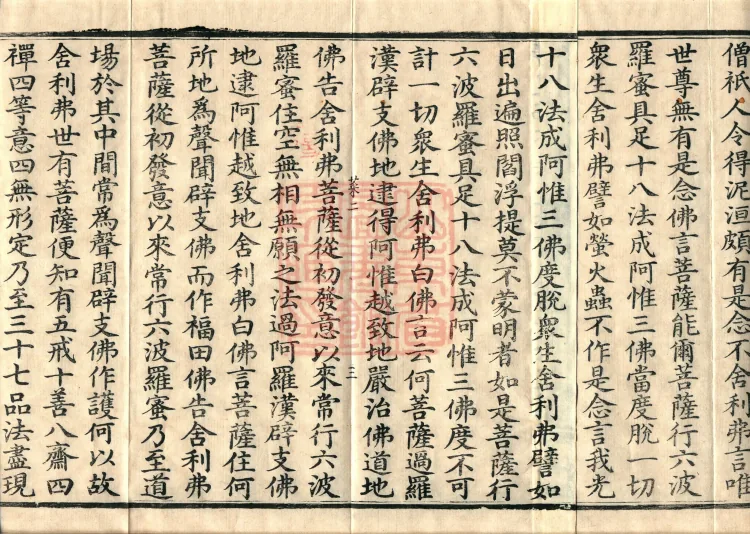 僧祇人令得泥洹頗有是念不舍利弗言唯
世尊無有是念佛言菩薩能爾菩薩行六波
羅蜜具足十八法成阿惟三佛當度脫一切
衆生舍利弗譬如螢火蟲不作是念言我光
十八法成阿惟三佛度脫衆生舍利弗譬如
日出遍照閻浮提莫不蒙明者如是菩薩行
六波羅蜜具足十八法成阿惟三佛度不可
計一切衆生舍利弗白佛言云何菩薩過羅
漢辟支佛地逮得阿惟越致地嚴治佛道地
菜二 三
佛告舍利弗菩薩從初發意以來常行六波
羅蜜住空無相無願之法過阿羅漢辟支佛
地逮阿惟越致地舍利弗白佛言菩薩住何
所地爲聲聞辟支佛而作福田佛告舍利弗
菩薩從初發意以來常行六波羅蜜乃至道
場於其中間常爲聲聞辟支佛作護何以故
舍利弗世有菩薩便知有五戒十善八齋四
禪四等意四無形定乃至三十七品法盡現